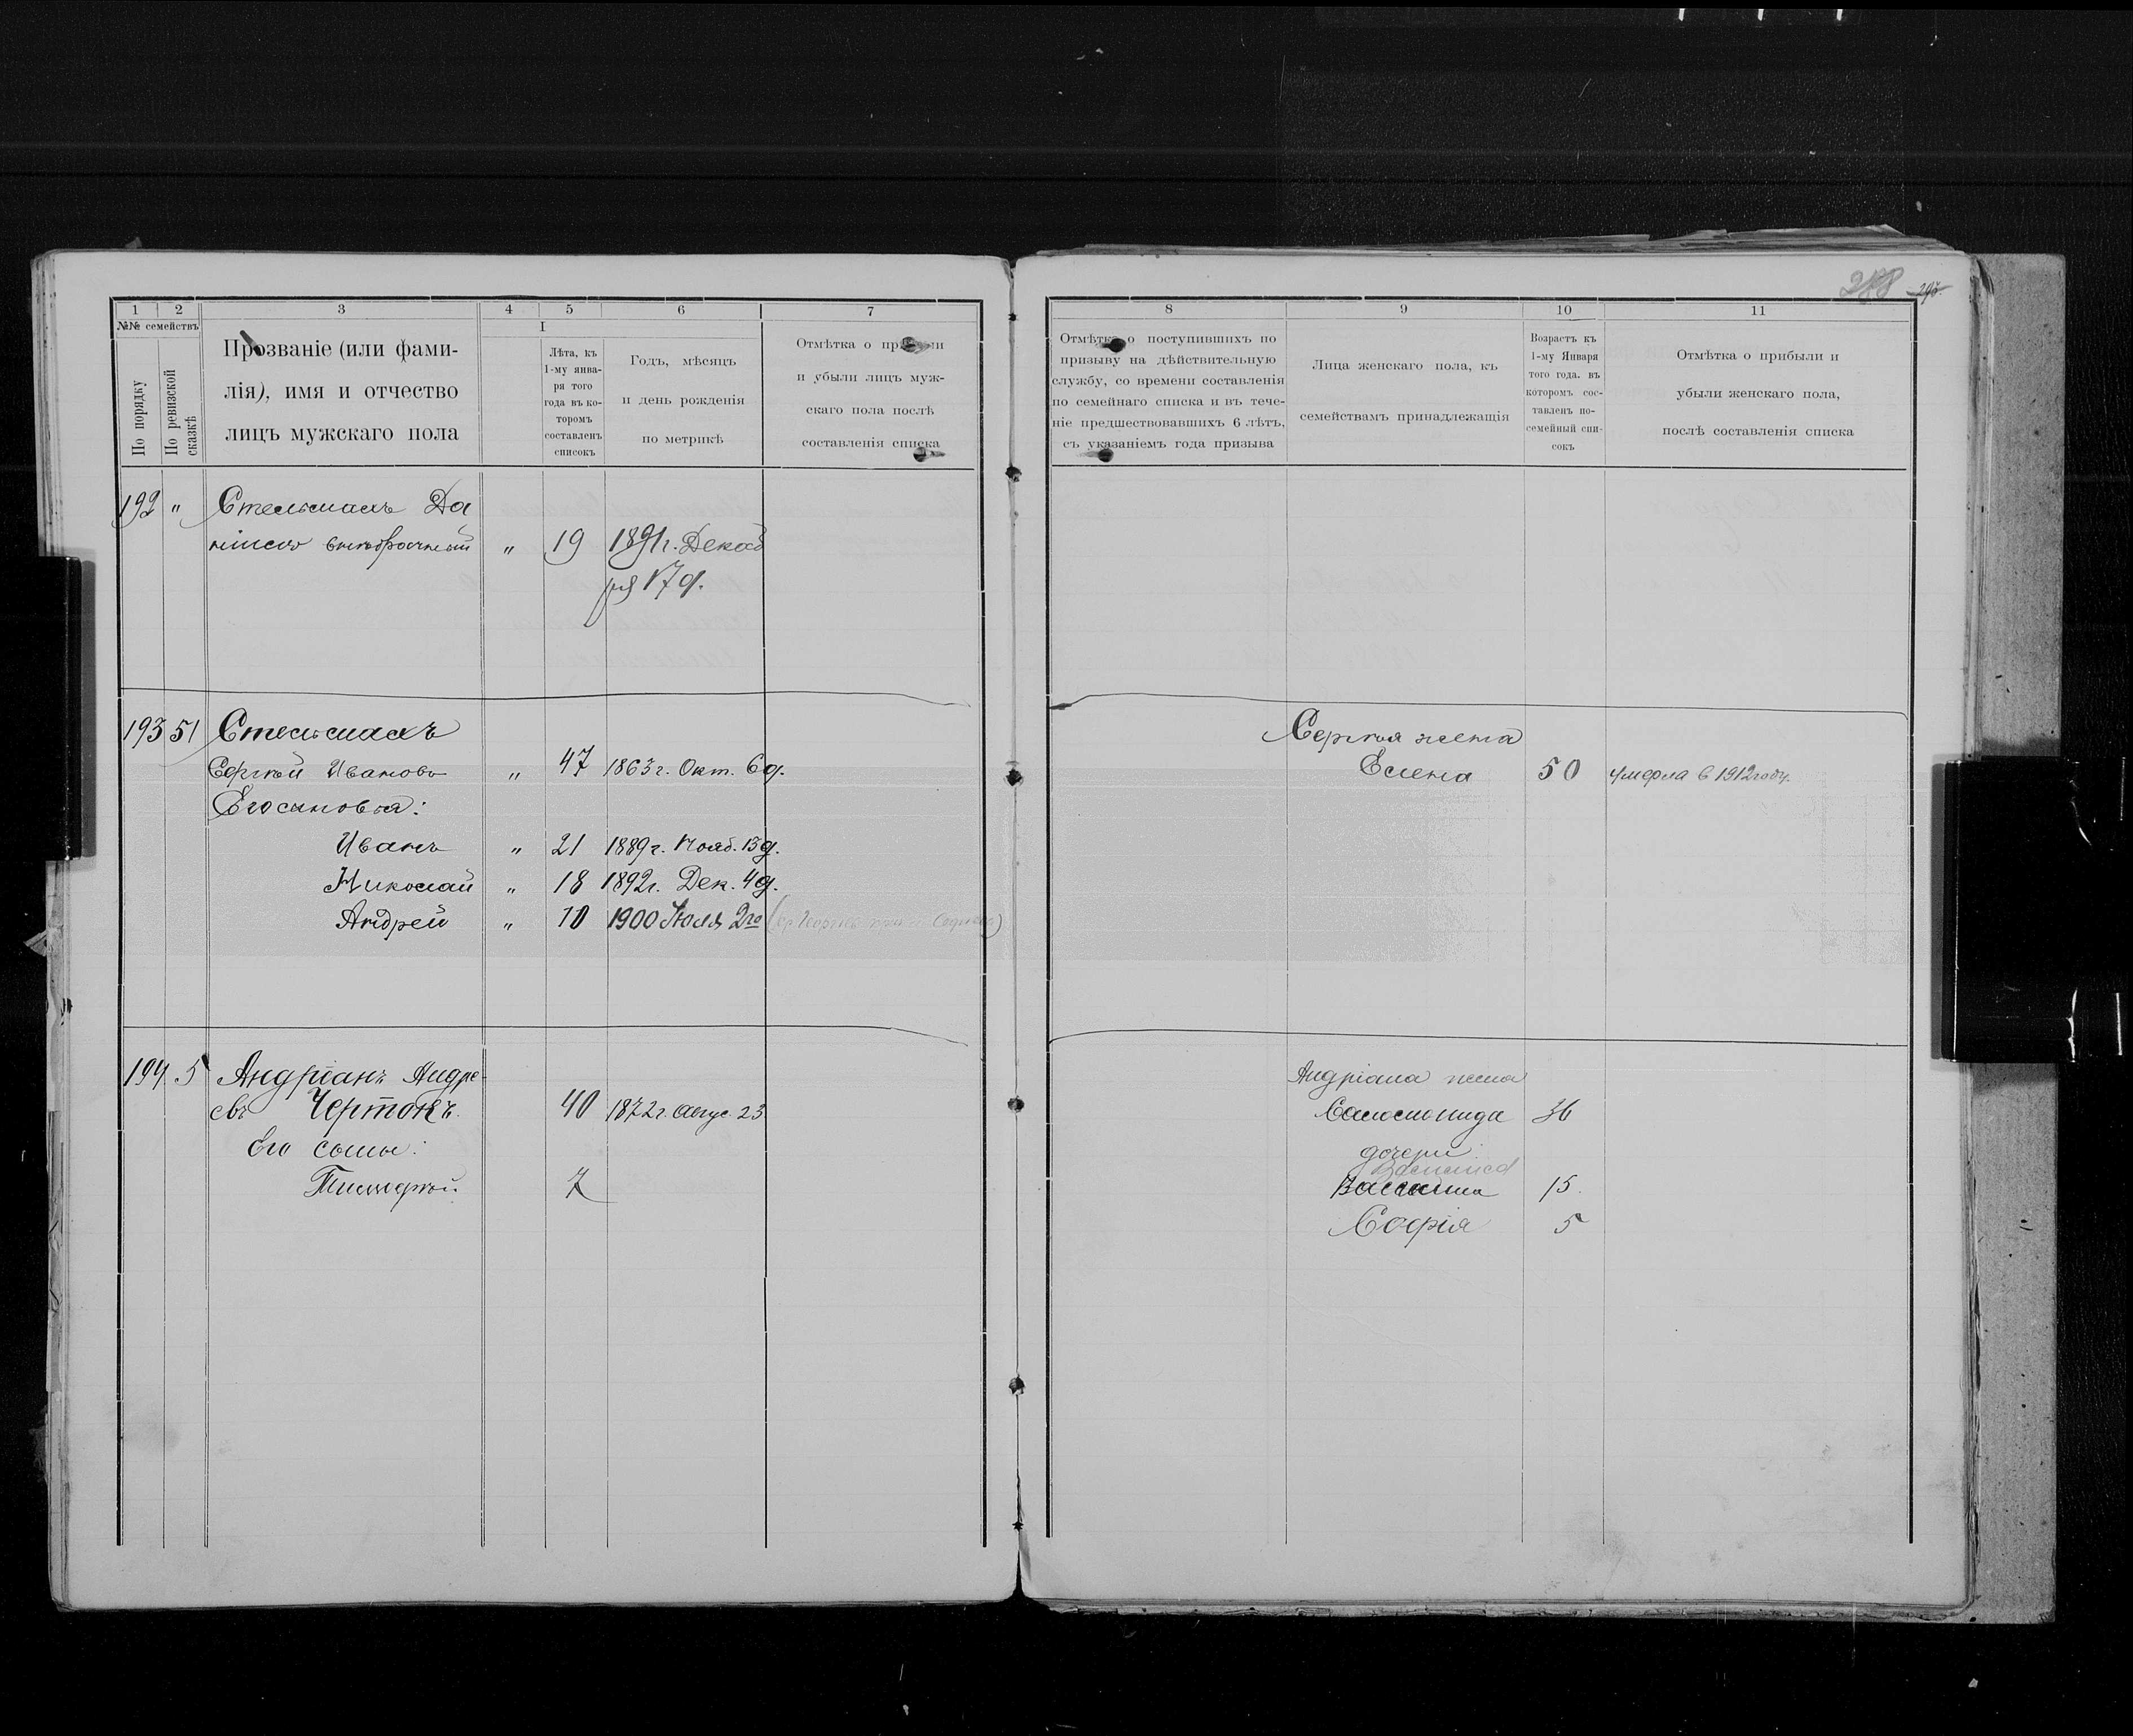 288 297.
1 2 3 4 5 6 7
№№ семействъ
По порядку
По ревизской сказкѣ
Прозваніе (или фами-
лія), имя и отчество
лицъ мужскаго пола
I
Лѣта, къ
1-му янва-
ря того
года въ ко-
торомъ
составленъ
списокъ
Годъ, мѣсяцъ
и день рожденія
по метрикѣ
Отмѣтка о прибыли
и убыли лицъ муж-
скаго пола послѣ
составленія списка
8 9 10 11
Отмѣтка о поступившихъ по
призыву на дѣйствительную
службу, со времени составленія
по семейнаго списка и въ тече-
ніе предшествовавшихъ 6 лѣтъ,
съ указаніемъ года призыва
Лица женскаго пола, къ
семействамъ принадлежащія
Возрастъ къ
1-му Января
того года. въ
которомъ сос-
тавленъ по-
семейный спи-
сокъ
Отмѣтка о прибыли и
убыли женскаго пола,
послѣ составленія списка
192 " Стельмахъ Да
ніилъ внѣбрачный " 19 1891г. Декаб
ря 17 д.
193 51 Стельмахъ
Сергѣй Ивановъ " 47 1863 г. Окт. 6 д.
Его сыновья:
Иванъ " 21 1889 г. Нояб. 13 д.
Николай " 18 1892г. Дек. 4 д.
Андрей " 10 1900 Іюля 2го
Сергѣя жена
Елена 50 умерла в 1912 году.
194. 5 Андріанъ Андре-
евъ Чертокъ. 40 1872 г. Авгус. 23
Его сыны:
Тимофѣй 7
Андріана жена
Саломонида 36
дочери:
Василиса
15.
Софія 5